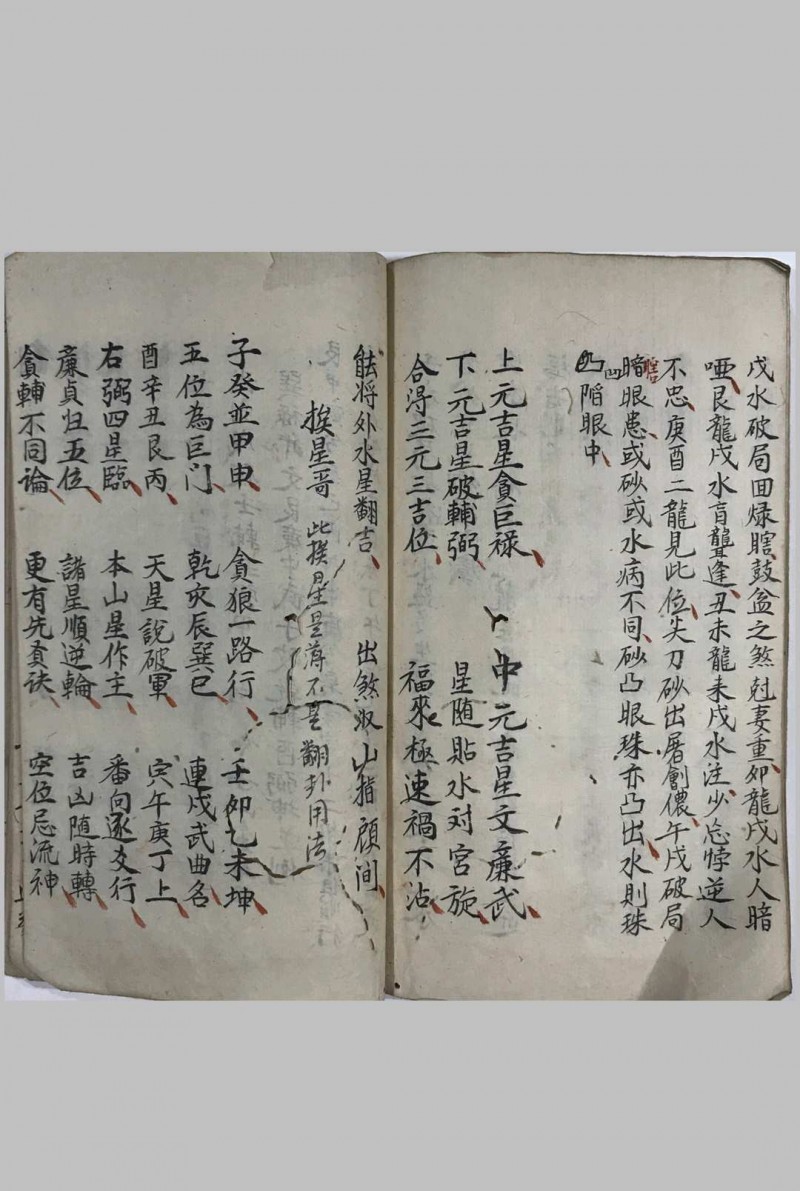 戊水破局回烪瞎鼓盆之煞尅妻重卯龍戊水人暗
啞艮龍戊水盲聾逢丑未龍未戊水注少忘悖逆人
不忠庚酉二龍見此位尖刀砂出屠劊儂午戊破局
暗眼患或砂或水病不同砂凸眼珠亦凸出水則珠
瞎
凹
凸陷眼中
上元吉星貪巨禄 中元吉星文廉武
下元吉星破輔弼 星随貼水対宮旋
合淂三元三吉位 福來極速禍不沾
䏻将外水星翻吉 出煞収山指顧间
挨星哥 此揬星是蔣不是翻卦用法
子癸並甲申 貪狼一路行 壬卯乙未坤
五位為巨门 乾亥辰巽巳 連戌武曲名
酉辛丑艮丙 天星說破軍 寅午庚丁上
右弼四星臨 本山星作主 番向逐爻行
廉貞归五位 諸星順逆輪 吉凶随時轉
貪輔不同論 更有先賁诀 空位忌流神